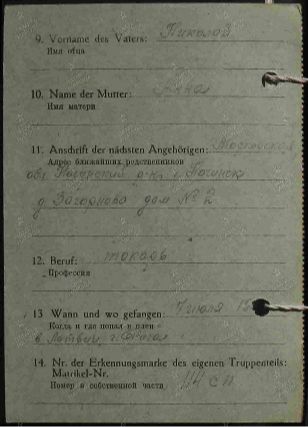 9. Vorname des Vaters: Николай
Имя отца
10. Name der Mutter: Анна
Имя матери
11. Anschrift der nächsten Angehörigen:
Адрес ближайших родственников
обл
д Загорново дом № 2
12. Beruf: токарь
Профессия
13 Wann und wo gefangen: 7 июля
Когда и где попал в плен
в Латвии г.
14. Nr. der Erkennungsmarke des eigenen Truppenteils:
Matrikel-Nr.
Номер в собственной части 114 сп